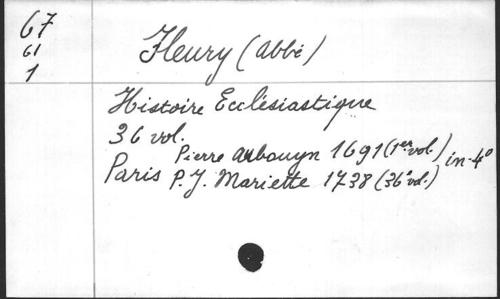 67
61
1
Fleury (abbé)
Histoire Ecclésiastique
36 vol.
Pierre Aubouyn 1691 (1er vol.)
Paris P.J. Mariette 1738 (36e vol.) in-4°